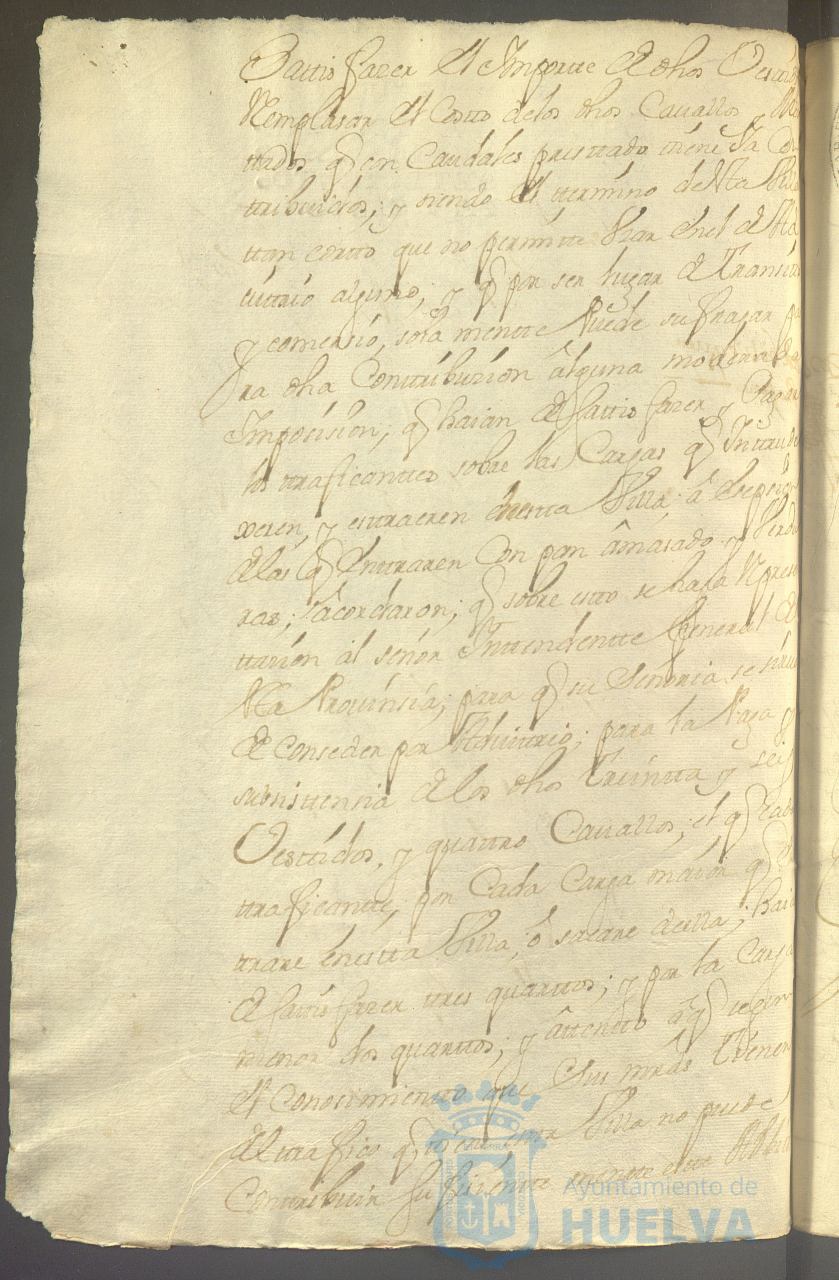 Sattisfazer el Importte de dhos Vestidos
Remplasar el Costto de los dhos Cavallos y Mon
ttados q̃ en Caudales presttado tiene dha Con
ttribuidos; y siendo el ttermino destta Villa
ttan cortto que no permitte Vsar en el de Ad
vittrio alguno; y q̃ por ser lugar de Transitto
y comersio, sola mentte Puede sufragar pa
ra dha Conttribuzion alguna moderada
Imposision, q̃ haian de sattisfazer y Pagar
los ttraficanttes sobre las Cargas q̃ Inttrudu
xeren, y esttraeren de estta Villa, á Exepsion
de las q̃ enttraren con pan âmasado y Verdu
ras; acordaron; q̃ sobre estto se haga Represen
ttazion al señor Inttendentte General de
estta Provinsia; para q̃ su Señoria se sirva
de Conseder por Advittrio; para la Paga y
subsisttensia de los dhos Treintta y seis
Vesttidos, y quattro Cavallos; el q̃ cada
ttraficantte, por Cada Carga maior q̃ en
ttrare en estta Villa, ó sacare de ella; haia
de sattisfazer ttres quarttos; y por la Carga
menor dos quarttos; y âttentto a q̃ segun
el Conocimientto que Sus mrds Tienen
del ttrafico q̃ ai en estta Villa no puede
Conttribuir sufisientte mentte estte Advi
Ayuntamiento de
HUELVA